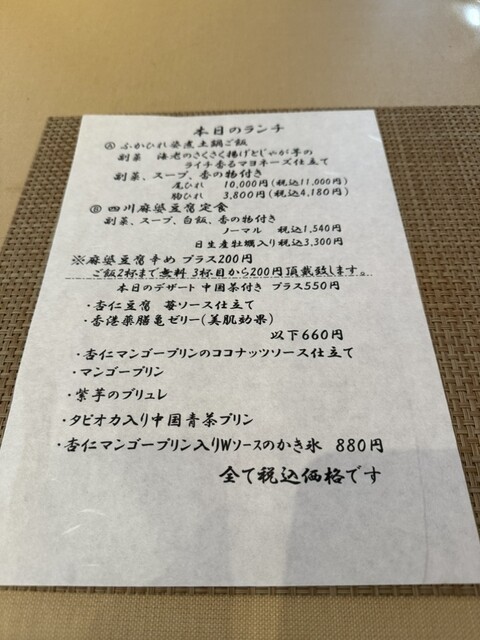 本日のランチ
Ⓐ ふかひれ姿煮土鍋ご飯
副菜 海老のさくさく揚げとじゃが芋の
ライチ香るマヨネーズ仕立て
副菜、スープ、香の物付き
尾ひれ 10,000円(税込11,000円)
胸ひれ 3,800円(税込4,180円)
Ⓑ 四川麻婆豆腐定食
副菜、スープ、白飯、香の物付き
ノーマル 税込1,540円
日生産牡蠣入り税込3,300円
※麻婆豆腐辛め プラス200円
ご飯2杯まで無料 3杯目から200円頂戴致します。
本日のデザート 中国茶付き プラス550円
・杏仁豆腐 苺ソース仕立て
・香港薬膳亀ゼリー(美肌効果)
以下660円
・杏仁マンゴープリンのココナッツソース仕立て
・マンゴープリン
・紫芋のブリュレ
・タピオカ入り中国青茶プリン
・杏仁マンゴープリン入りWソースのかき氷 880円
全て税込価格です